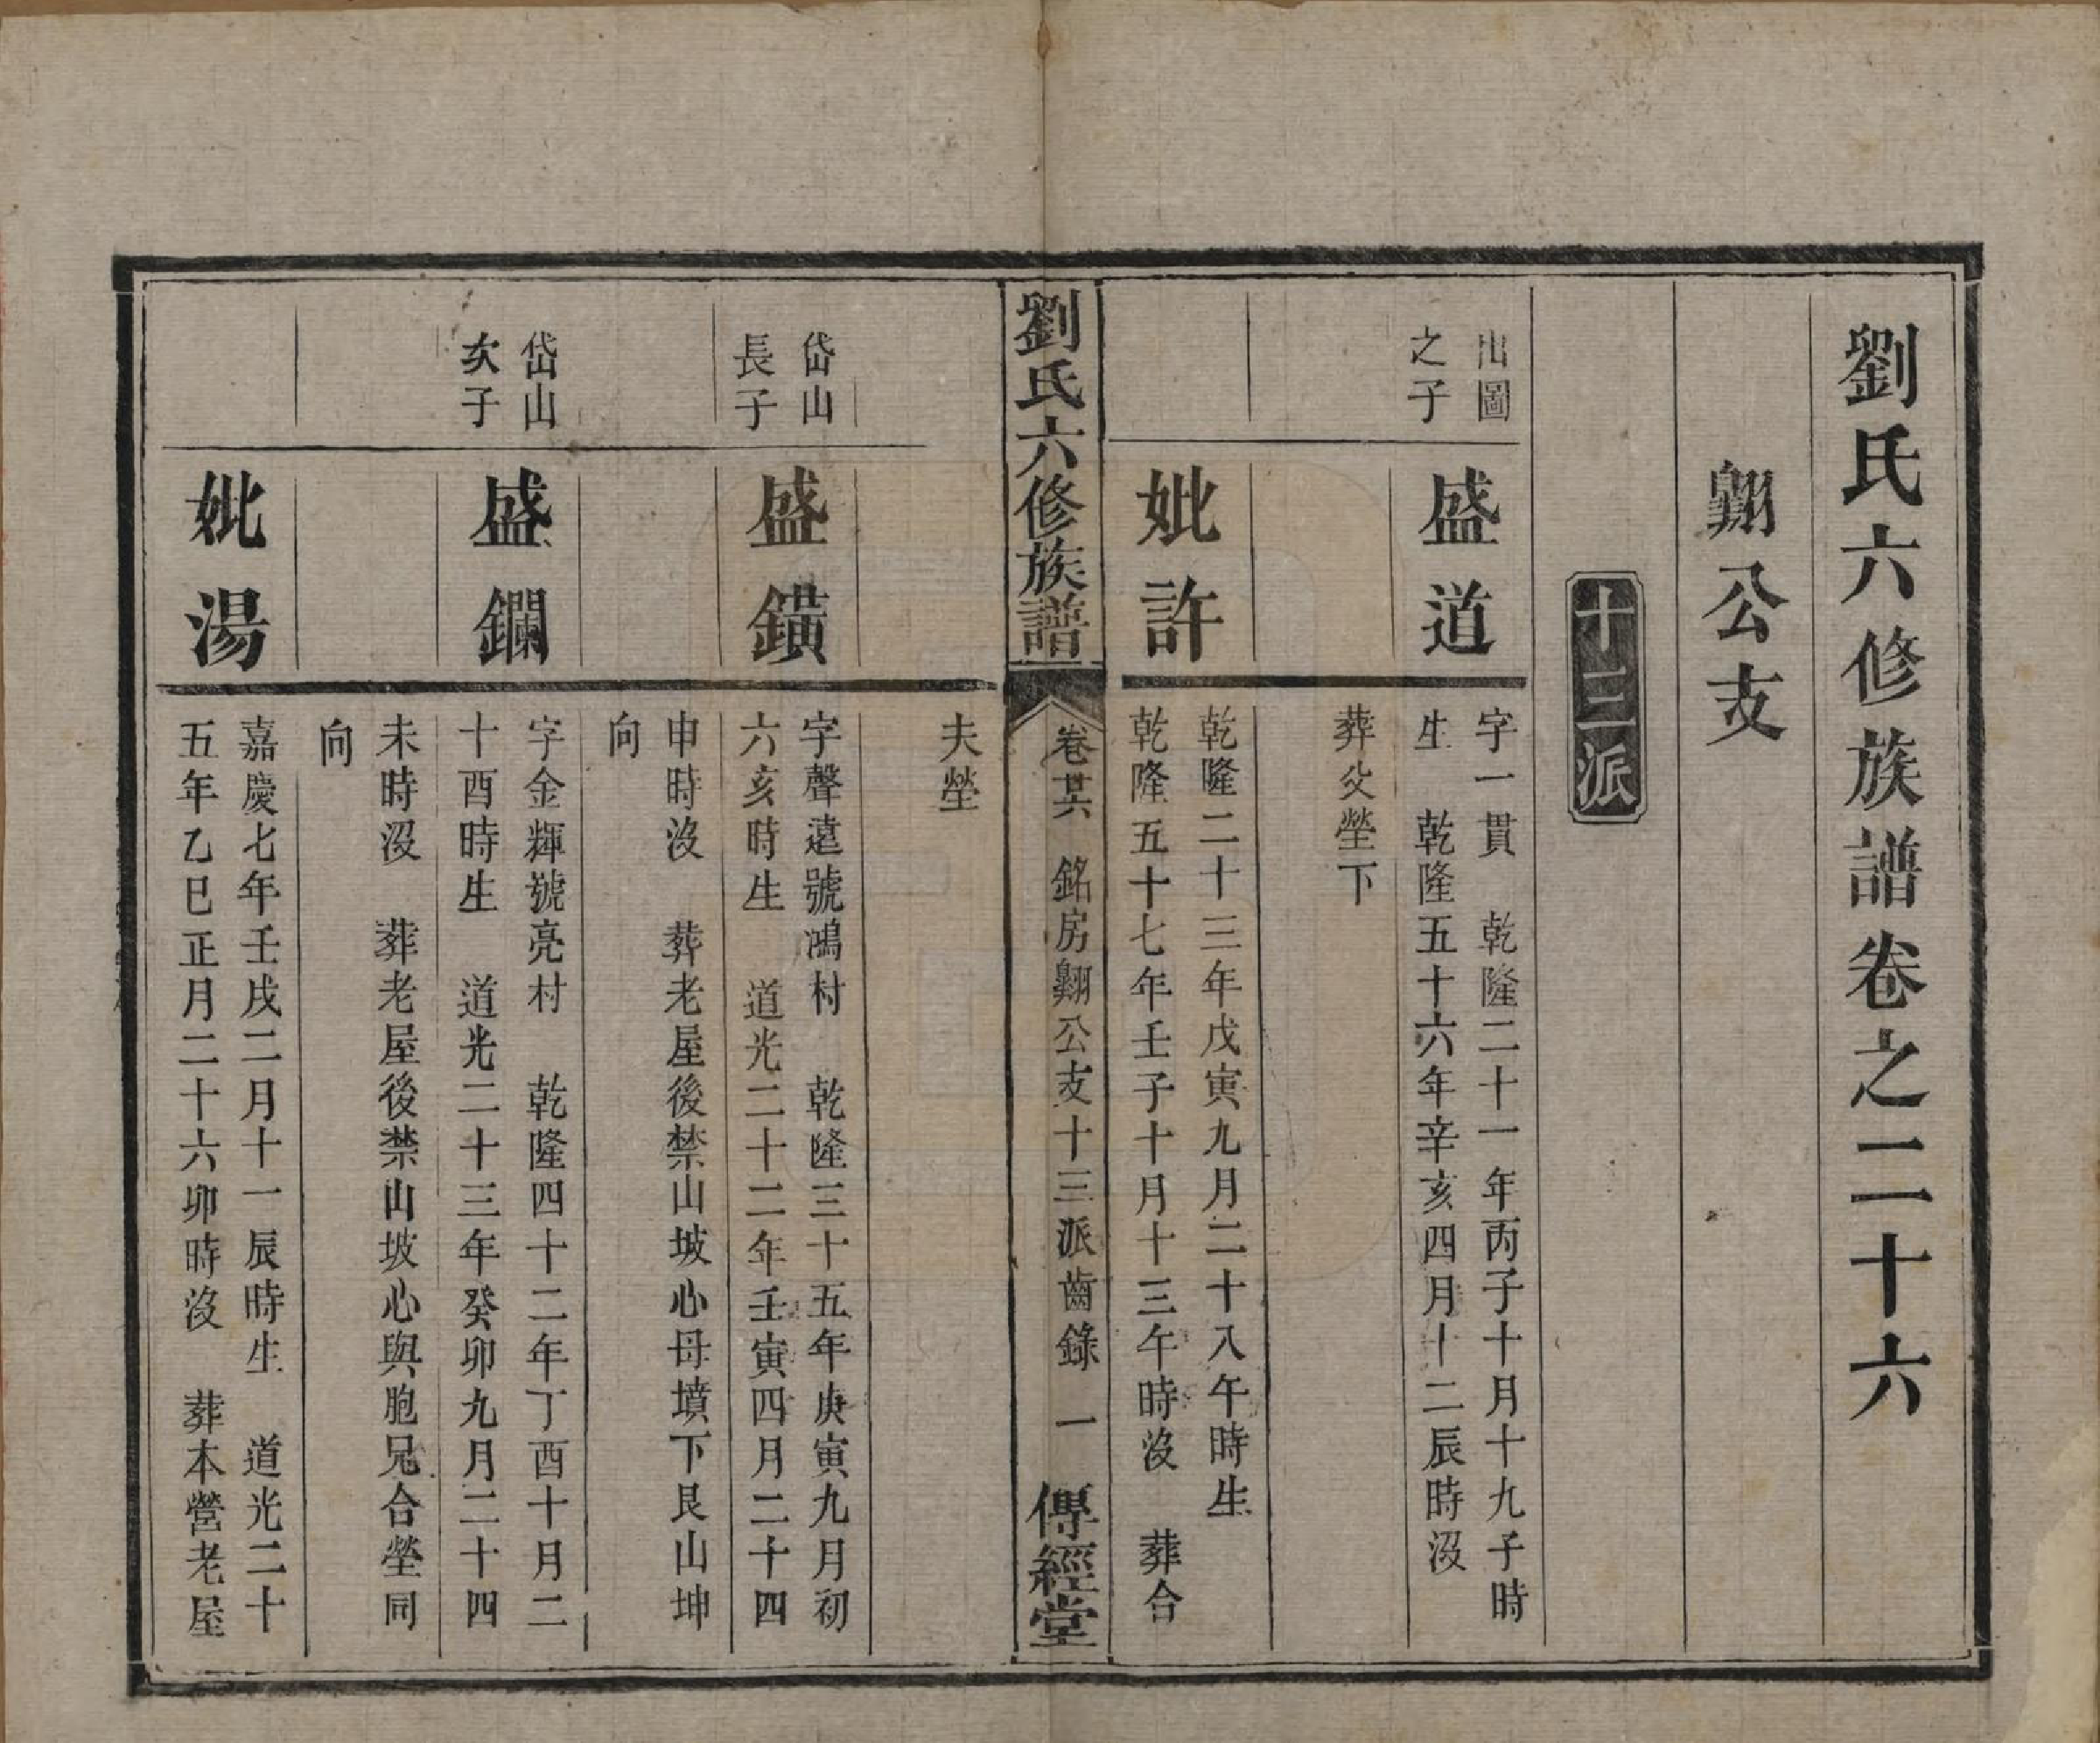 劉氏六修族譜卷之二十六
翺公支
十三派
出圖
之子
盛道
字一貫　乾隆二十一年丙子十月十九子時
生　乾隆五十六年辛亥四月十二辰時沒
葬父塋下
妣許
乾隆二十三年戊寅九月二十八午時生
乾隆五十七年壬子十月十三午時沒　葬合
劉氏六修族譜
卷廿六　銘房翺公支十三派齒錄　一
傳經堂
夫塋
岱山
長子
盛鐄
字聲遠號鴻村　乾隆三十五年庚寅九月初
六亥時生　道光二十二年壬寅四月二十四
申時沒　葬老屋後禁山坡心母墳下艮山坤
向
岱山
次子
盛鑭
字金輝號亮村　乾隆四十二年丁酉十月二
十酉時生　道光二十三年癸卯九月二十四
未時沒　葬老屋後禁山坡心與胞兄合塋同
向
妣湯
嘉慶七年壬戌二月十一辰時生　道光二十
五年乙巳正月二十六卯時沒　葬本營老屋